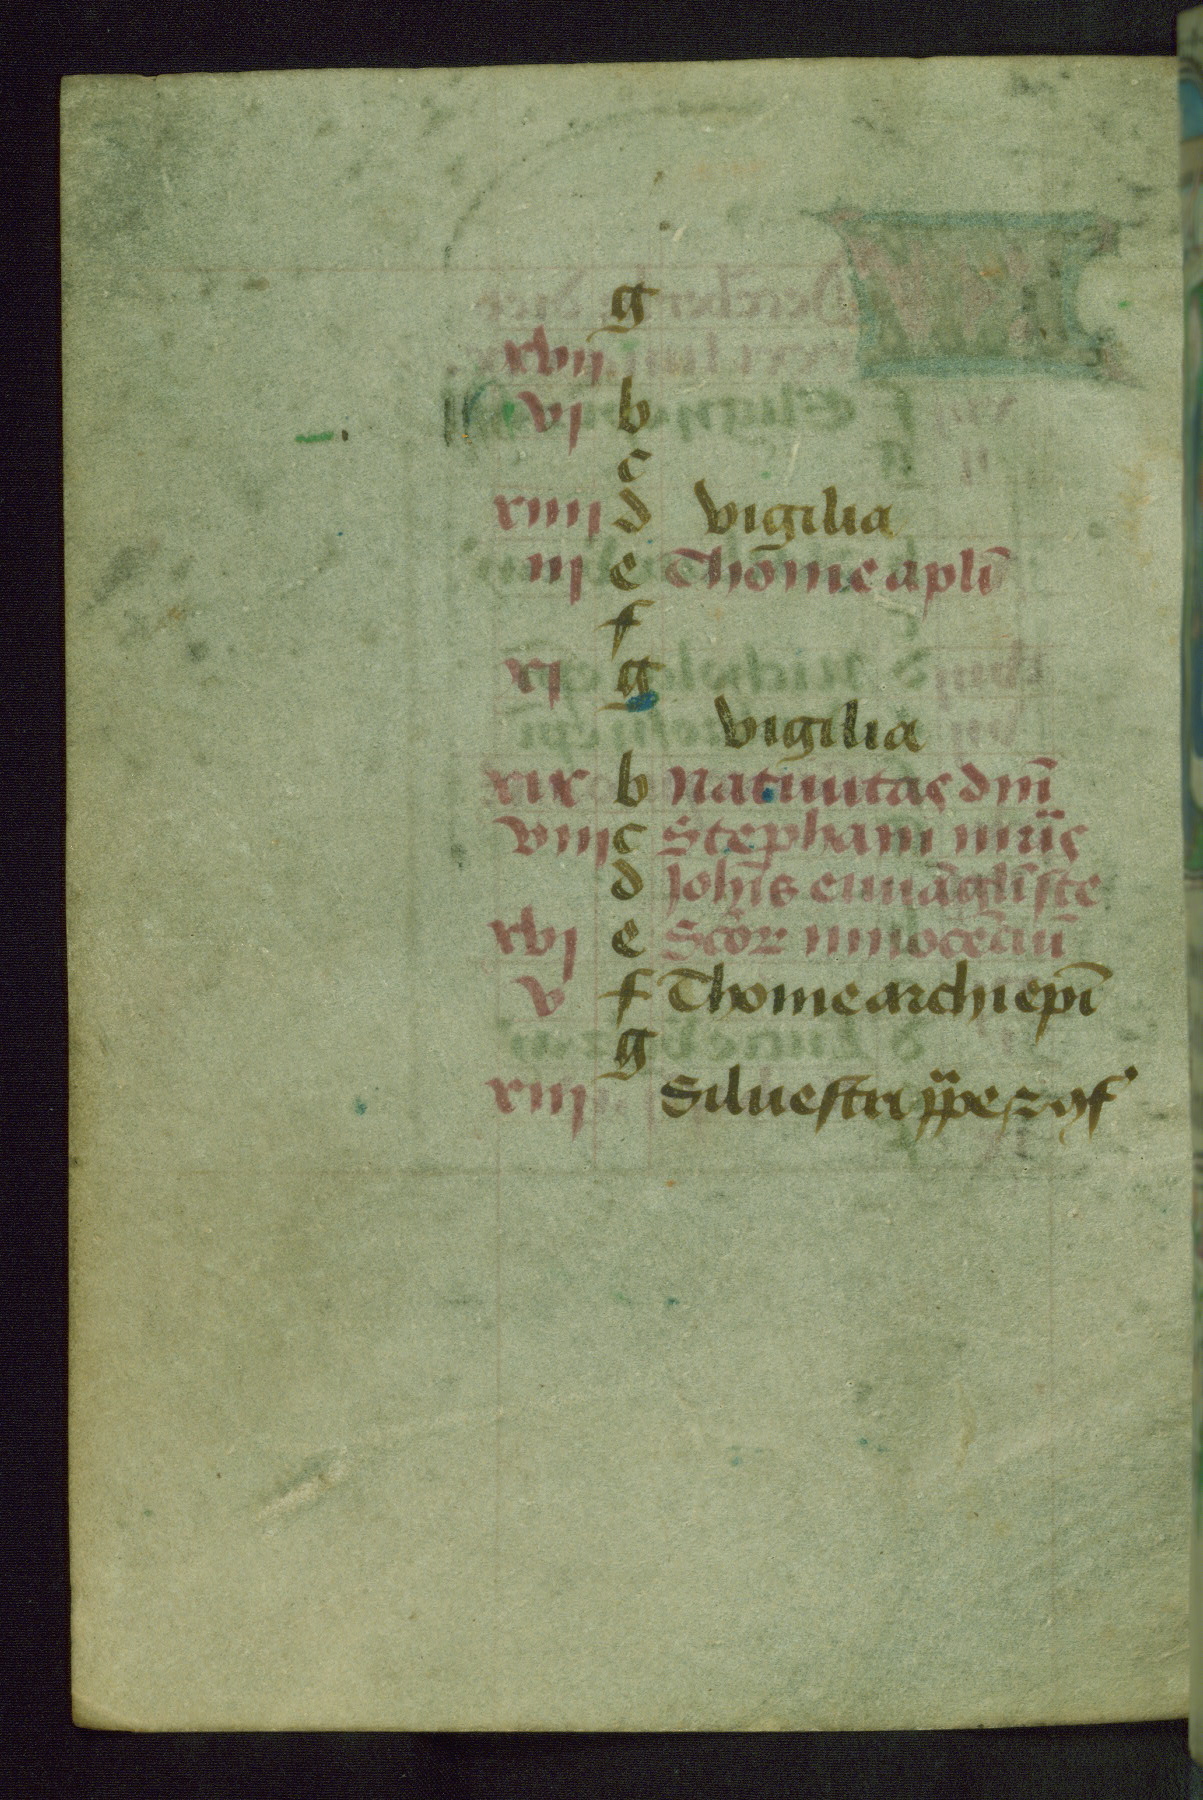 g
xvij
vj b
c
xiiij d vigilia
iij e Thōme apl̄i
f
xj g
vigilia
xix b Natiuitas dn̄i
viij c Stephani mr̄is
d Joh̄is euuāgl̄iste
xvj e Scōꝝ innocēciū
v f Thome archiep̄i
g
xiij Siluestri pp̄e ⁊ ꝯf